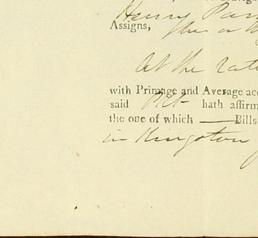 Henry
Assigns, he or
At the rate
with Primage and Average acc
said hath affirm
the one of which — Bills
in Kingston